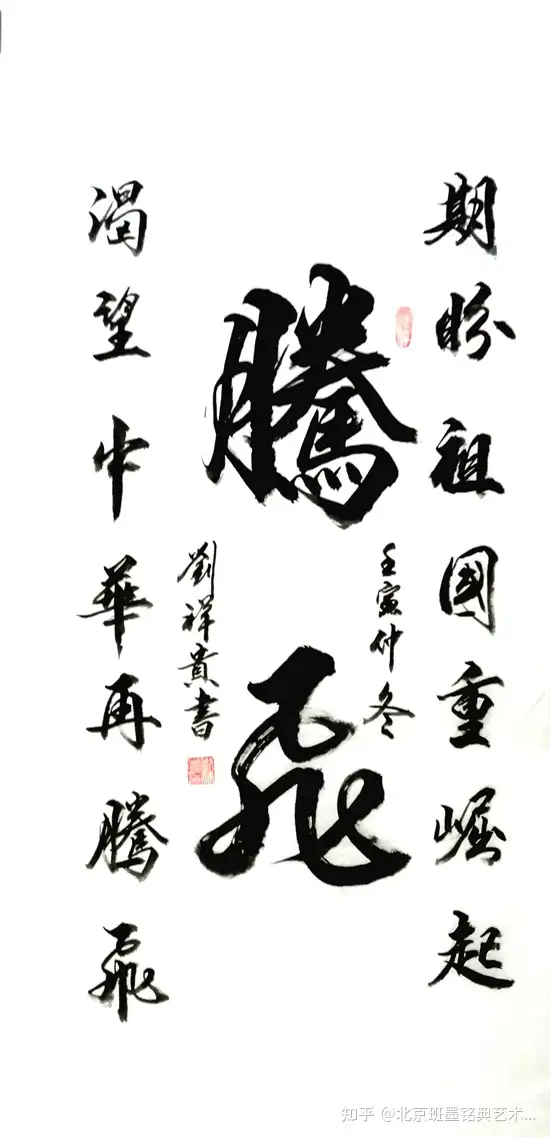 期盼祖國重崛起
騰飛
壬寅仲冬
劉祥貴書
渴望中華再騰飛
知乎 @北京班墨铭典艺术...